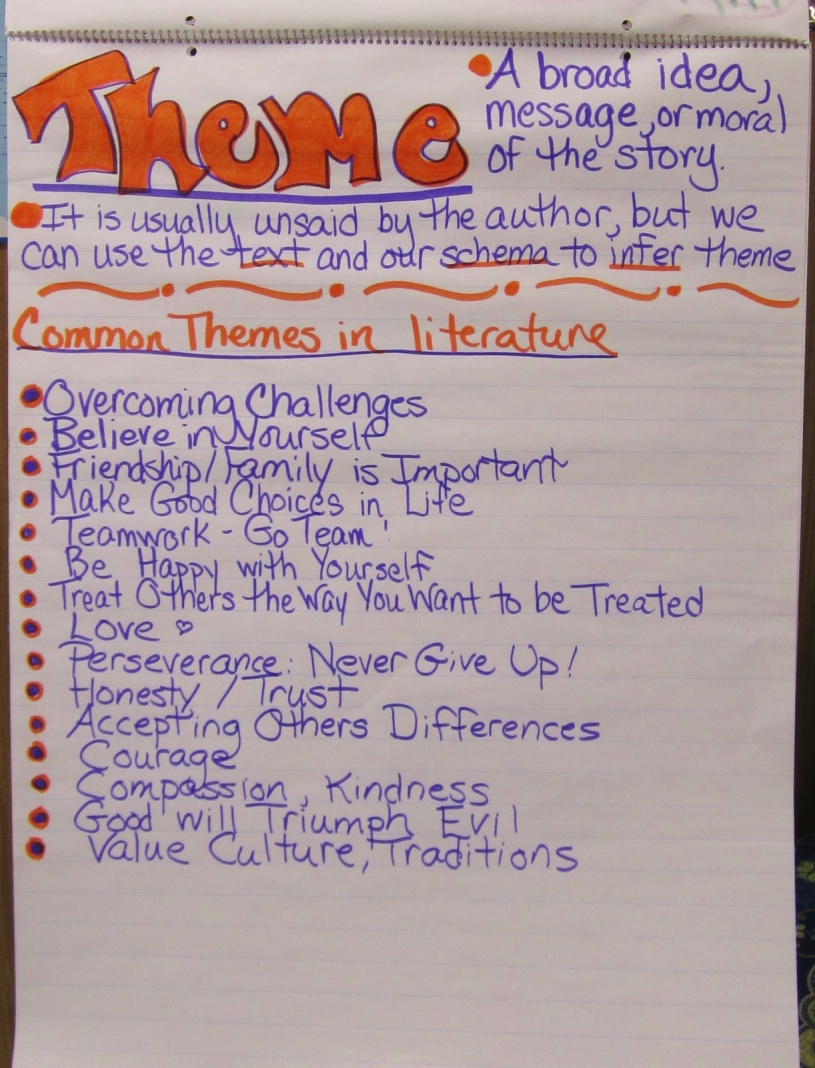 Theme
A broad idea,
message, or moral
of the story.
It is usually unsaid by the author, but we
can use the text and our schema to infer theme
Common Themes in literature
Overcoming Challenges
Believe in Yourself
Friendship/Family is Important
Make Good Choices in Life
Teamwork - Go Team!
Be Happy with Yourself
Treat Others the Way You Want to be Treated
Love ♡
Perseverance: Never Give Up!
Honesty / Trust
Accepting Others Differences
Courage
Compassion, Kindness
Good will Triumph Evil
Value Culture, Traditions